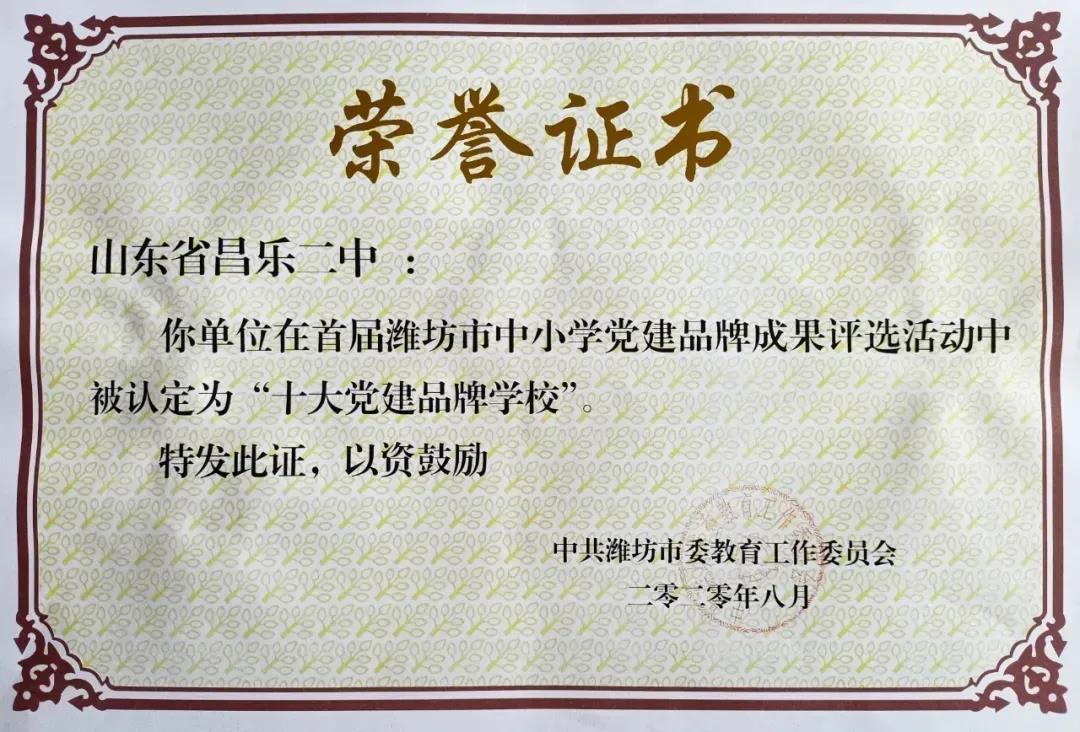 荣誉证书
山东省昌乐二中：
你单位在首届潍坊市中小学党建品牌成果评选活动中
被认定为“十大党建品牌学校”。
特发此证，以资鼓励
中共潍坊市委教育工作委员会
二零二零年八月